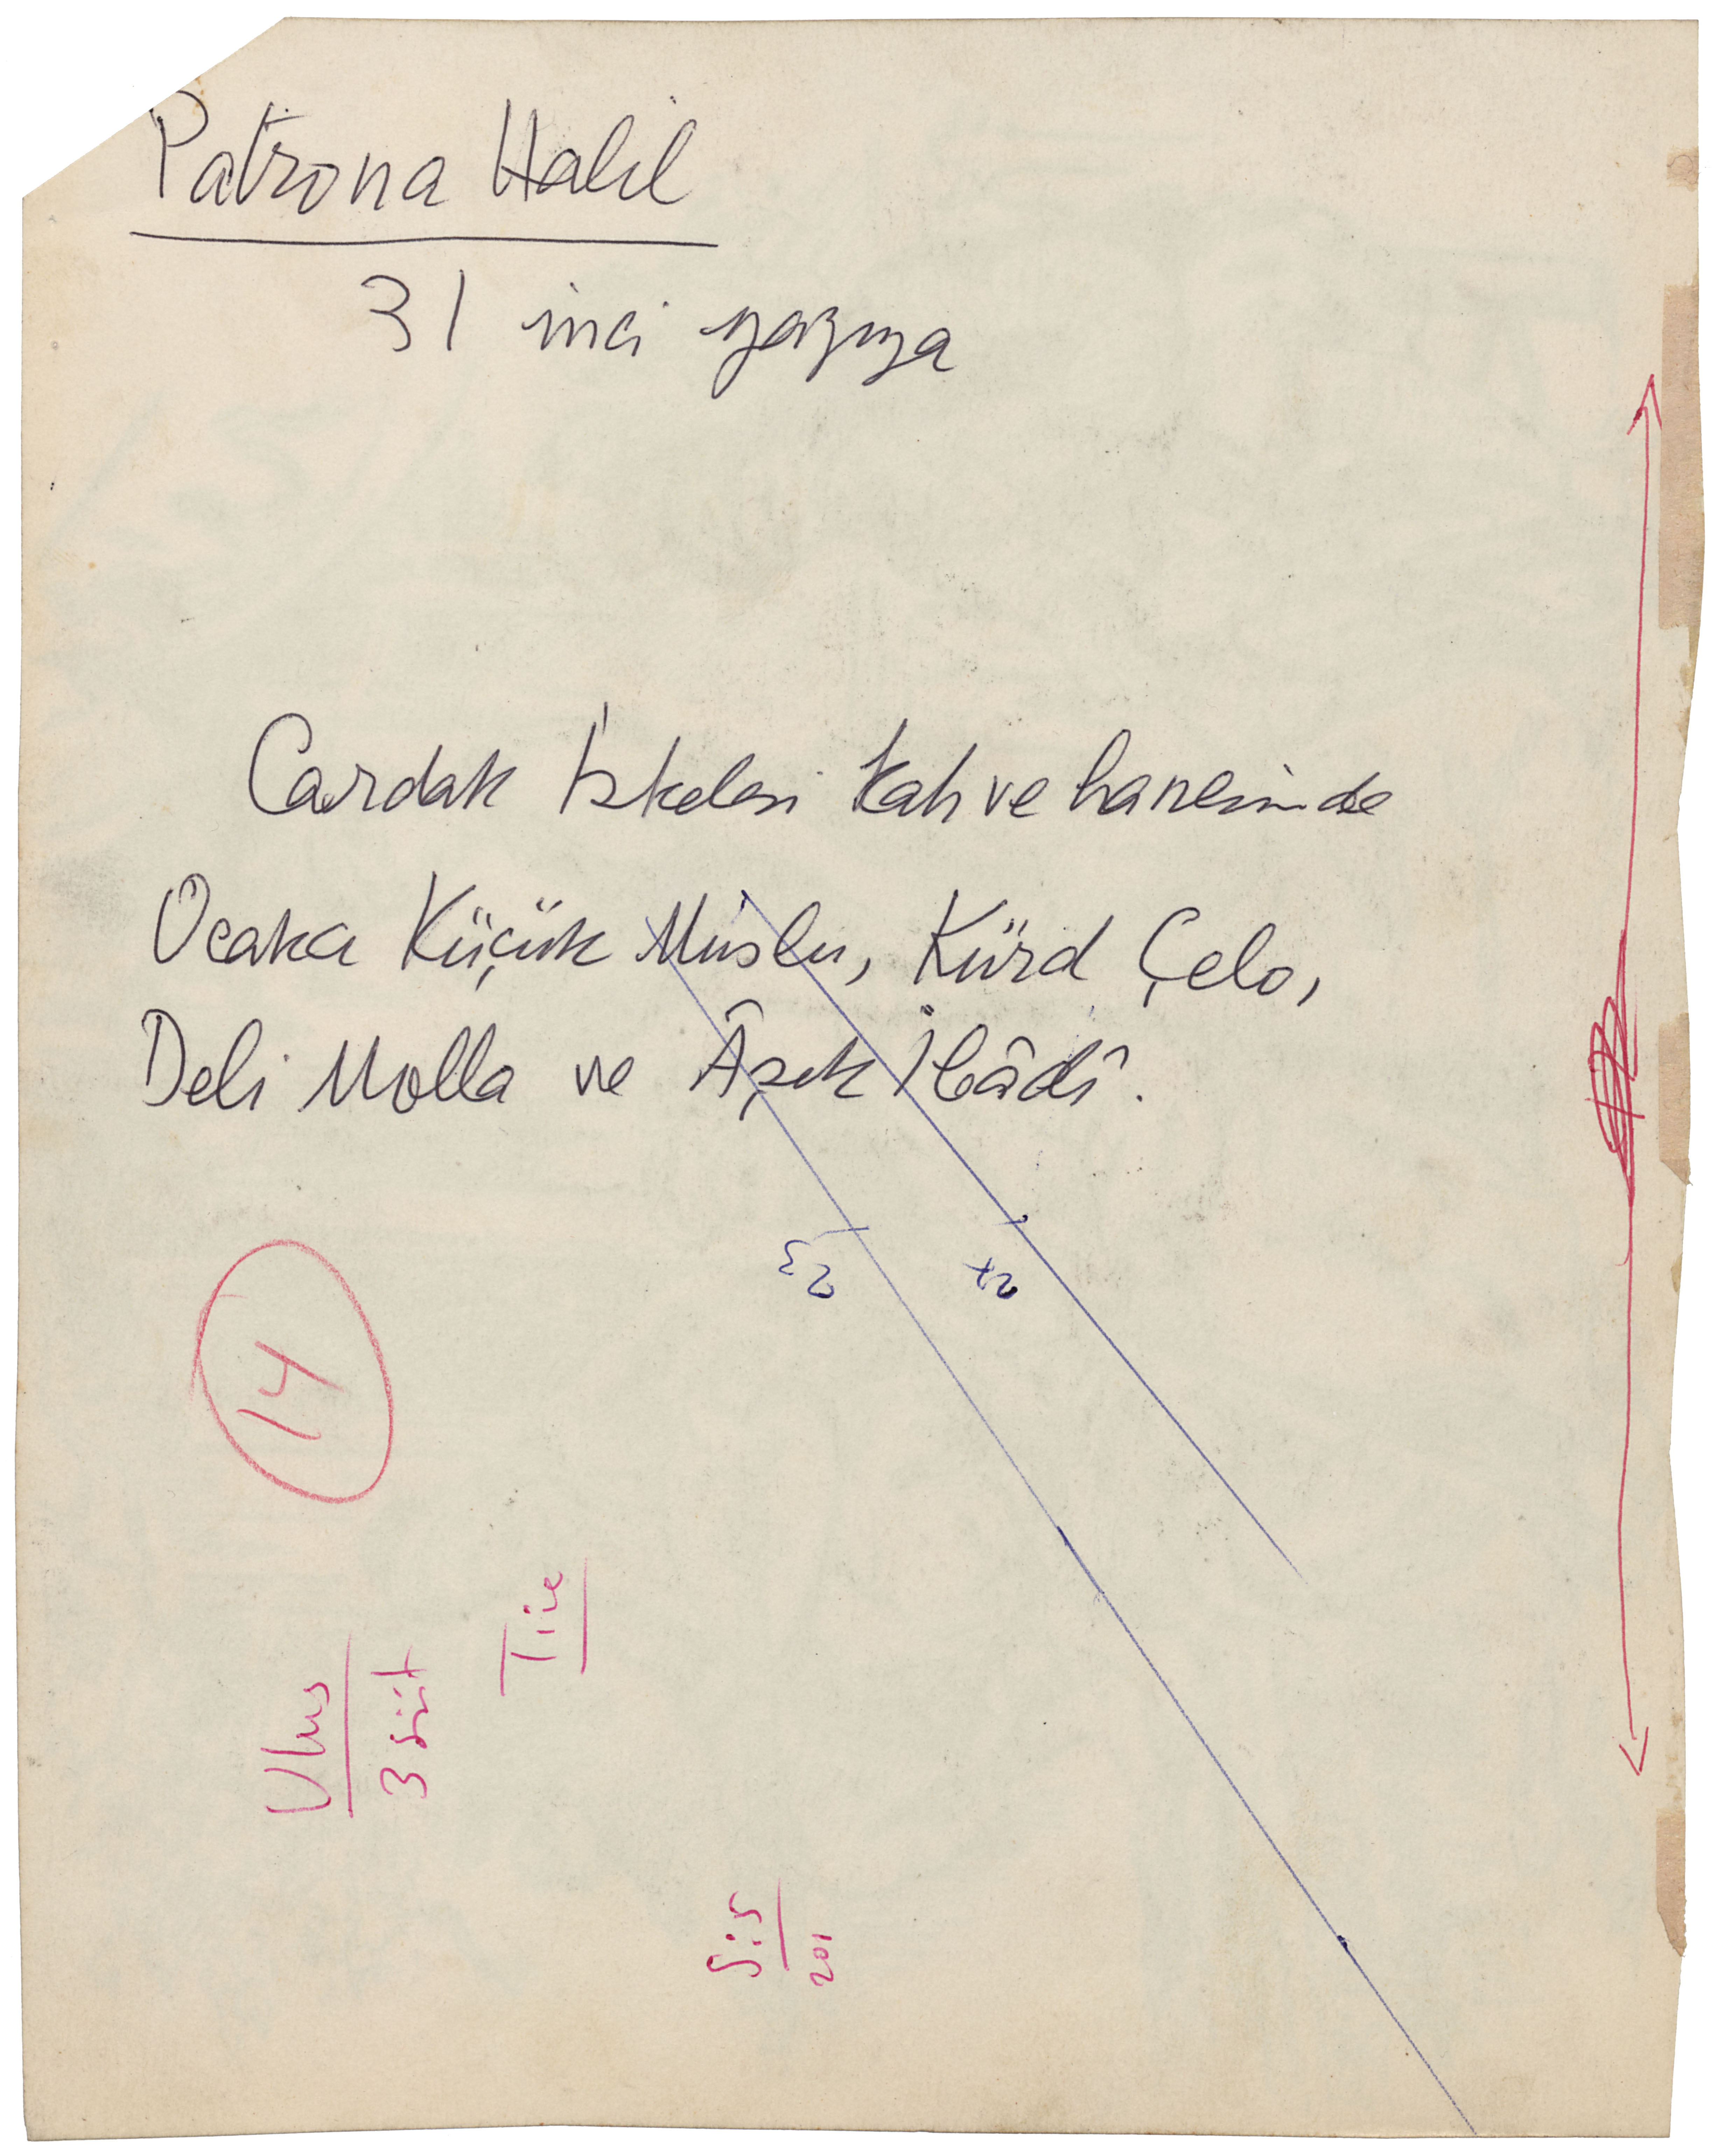 Patrona Halil
31 inci yazıya
Çardak İskelesi Kahvehanesinde
Ocakcı Küçük Muslu, Kürd Çelo,
Deli Molla ve Âşık İbâdî.
23
14
Ulus
3 süt
Tire
201